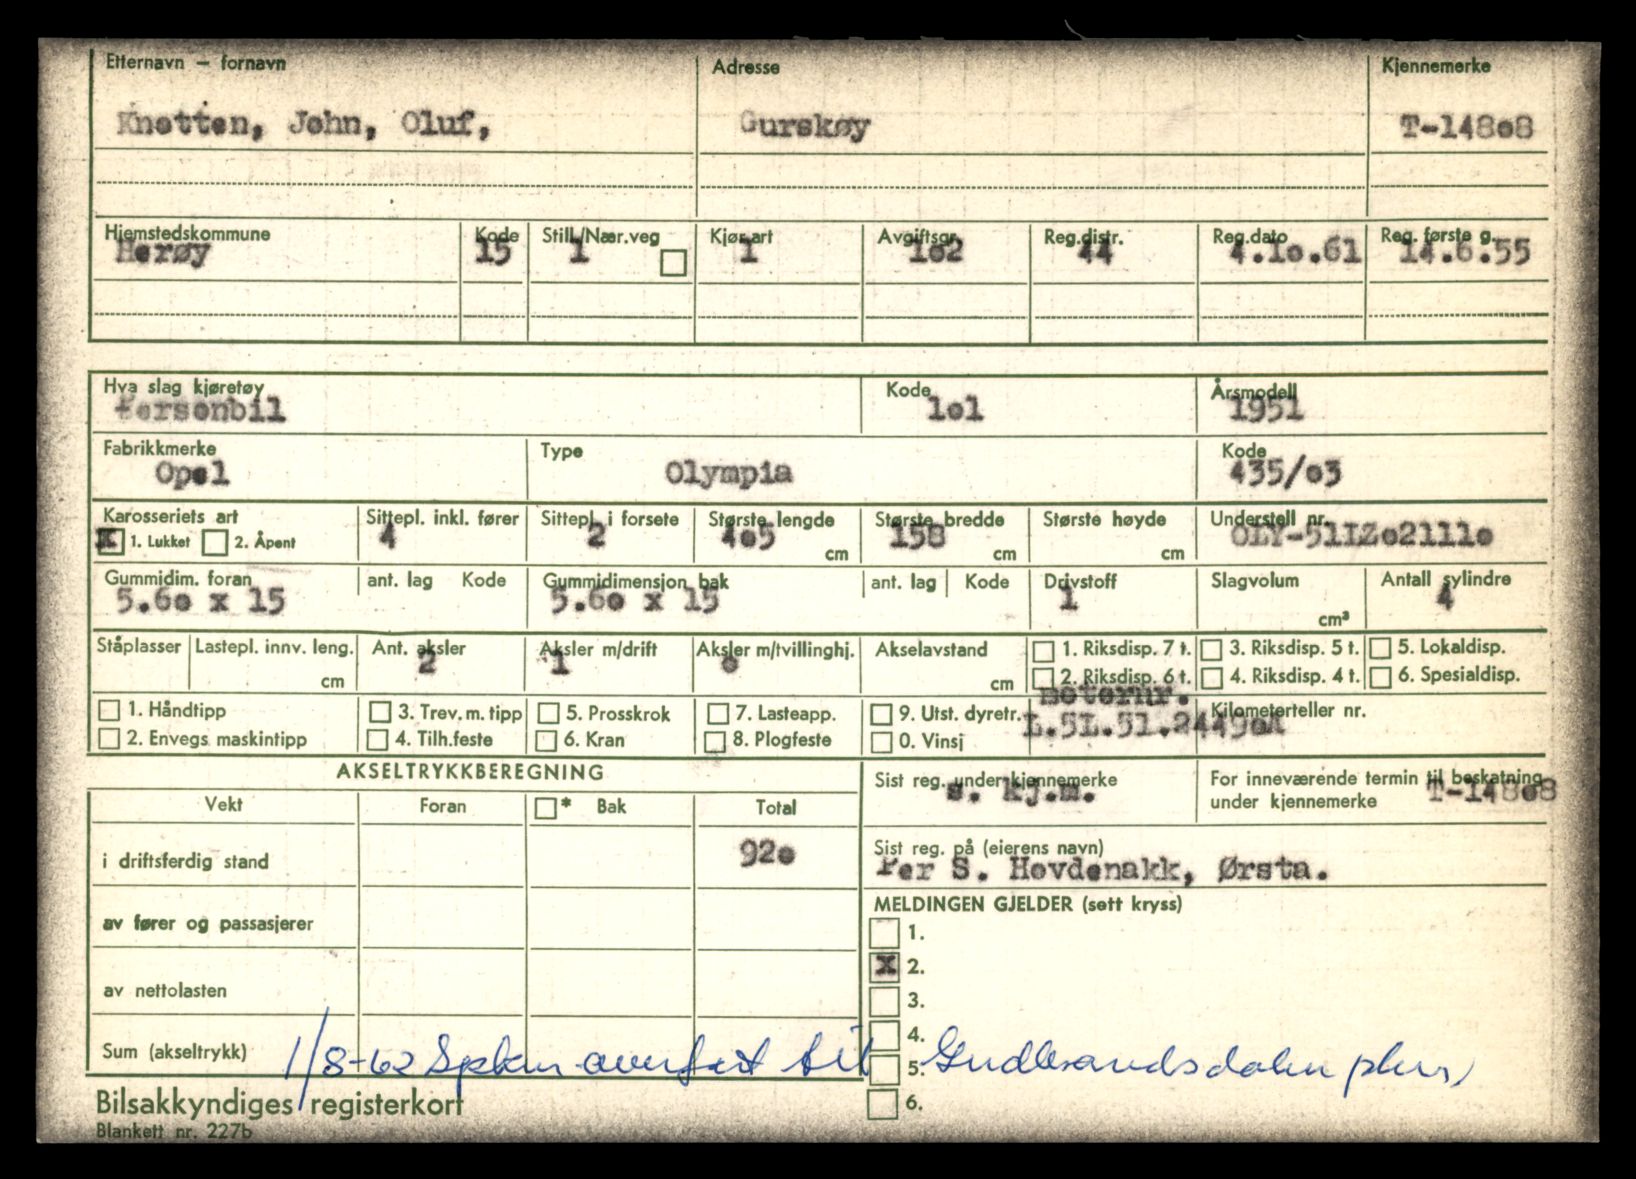 Etternavn – fornavn Adresse Kjennemerke
Knotten, John, Oluf, Gurskøy T-148o8
Hjemstedskommune Kode Still./Nær.veg Kjør.art Avgiftsgr. Reg.distr. Reg.dato Reg. første g.
Herøy 15 1 1 1o2 44 4.1o.61 14.6.55
Hva slag kjøretøy Kode Årsmodell
Personbil 1o1 1951
Fabrikkmerke Type Kode
Opel Olympia 435/o3
Karosseriets art Sittepl. inkl. fører Sittepl. i forsete Største lengde Største bredde Største høyde Understell nr.
X 1. Lukket 2. Åpent 4 2 4o5 cm 158 cm cm OLY-51LZo2111o
Gummidim. foran ant. lag Kode Gummidimensjon bak ant. lag Kode Drivstoff Slagvolum Antall sylindre
5.6o x 15 5.6o x 15 1 cm³ 4
Ståplasser Lastepl. innv. leng. Ant. aksler Aksler m/drift Aksler m/tvillinghj. Akselavstand 1. Riksdisp. 7 t. 3. Riksdisp. 5 t. 5. Lokaldisp.
cm 2 1 o cm 2. Riksdisp. 6 t. 4. Riksdisp. 4 t. 6. Spesialdisp.
motornr.
1. Håndtipp 3. Trev. m. tipp 5. Prosskrok 7. Lasteapp. 9. Utst. dyretr. Kilometerteller nr.
L.5L.51.2449oA
2. Envegs maskintipp 4. Tilh.feste 6. Kran 8. Plogfeste 0. Vinsj
AKSELTRYKKBEREGNING Sist reg. under kjennemerke For inneværende termin til beskatning
s. kj.m. under kjennemerke T-148o8
Vekt Foran * Bak Total
i driftsferdig stand 92o Sist reg. på (eierens navn)
Per S. Hovdenakk, Ørsta.
MELDINGEN GJELDER (sett kryss)
av fører og passasjerer 1.
X 2.
av nettolasten 3.
4.
Sum (akseltrykk) 1/8-62 overført til Gudbrandsdalen 5.
Bilsakkyndiges registerkort 6.
Blankett nr. 227b